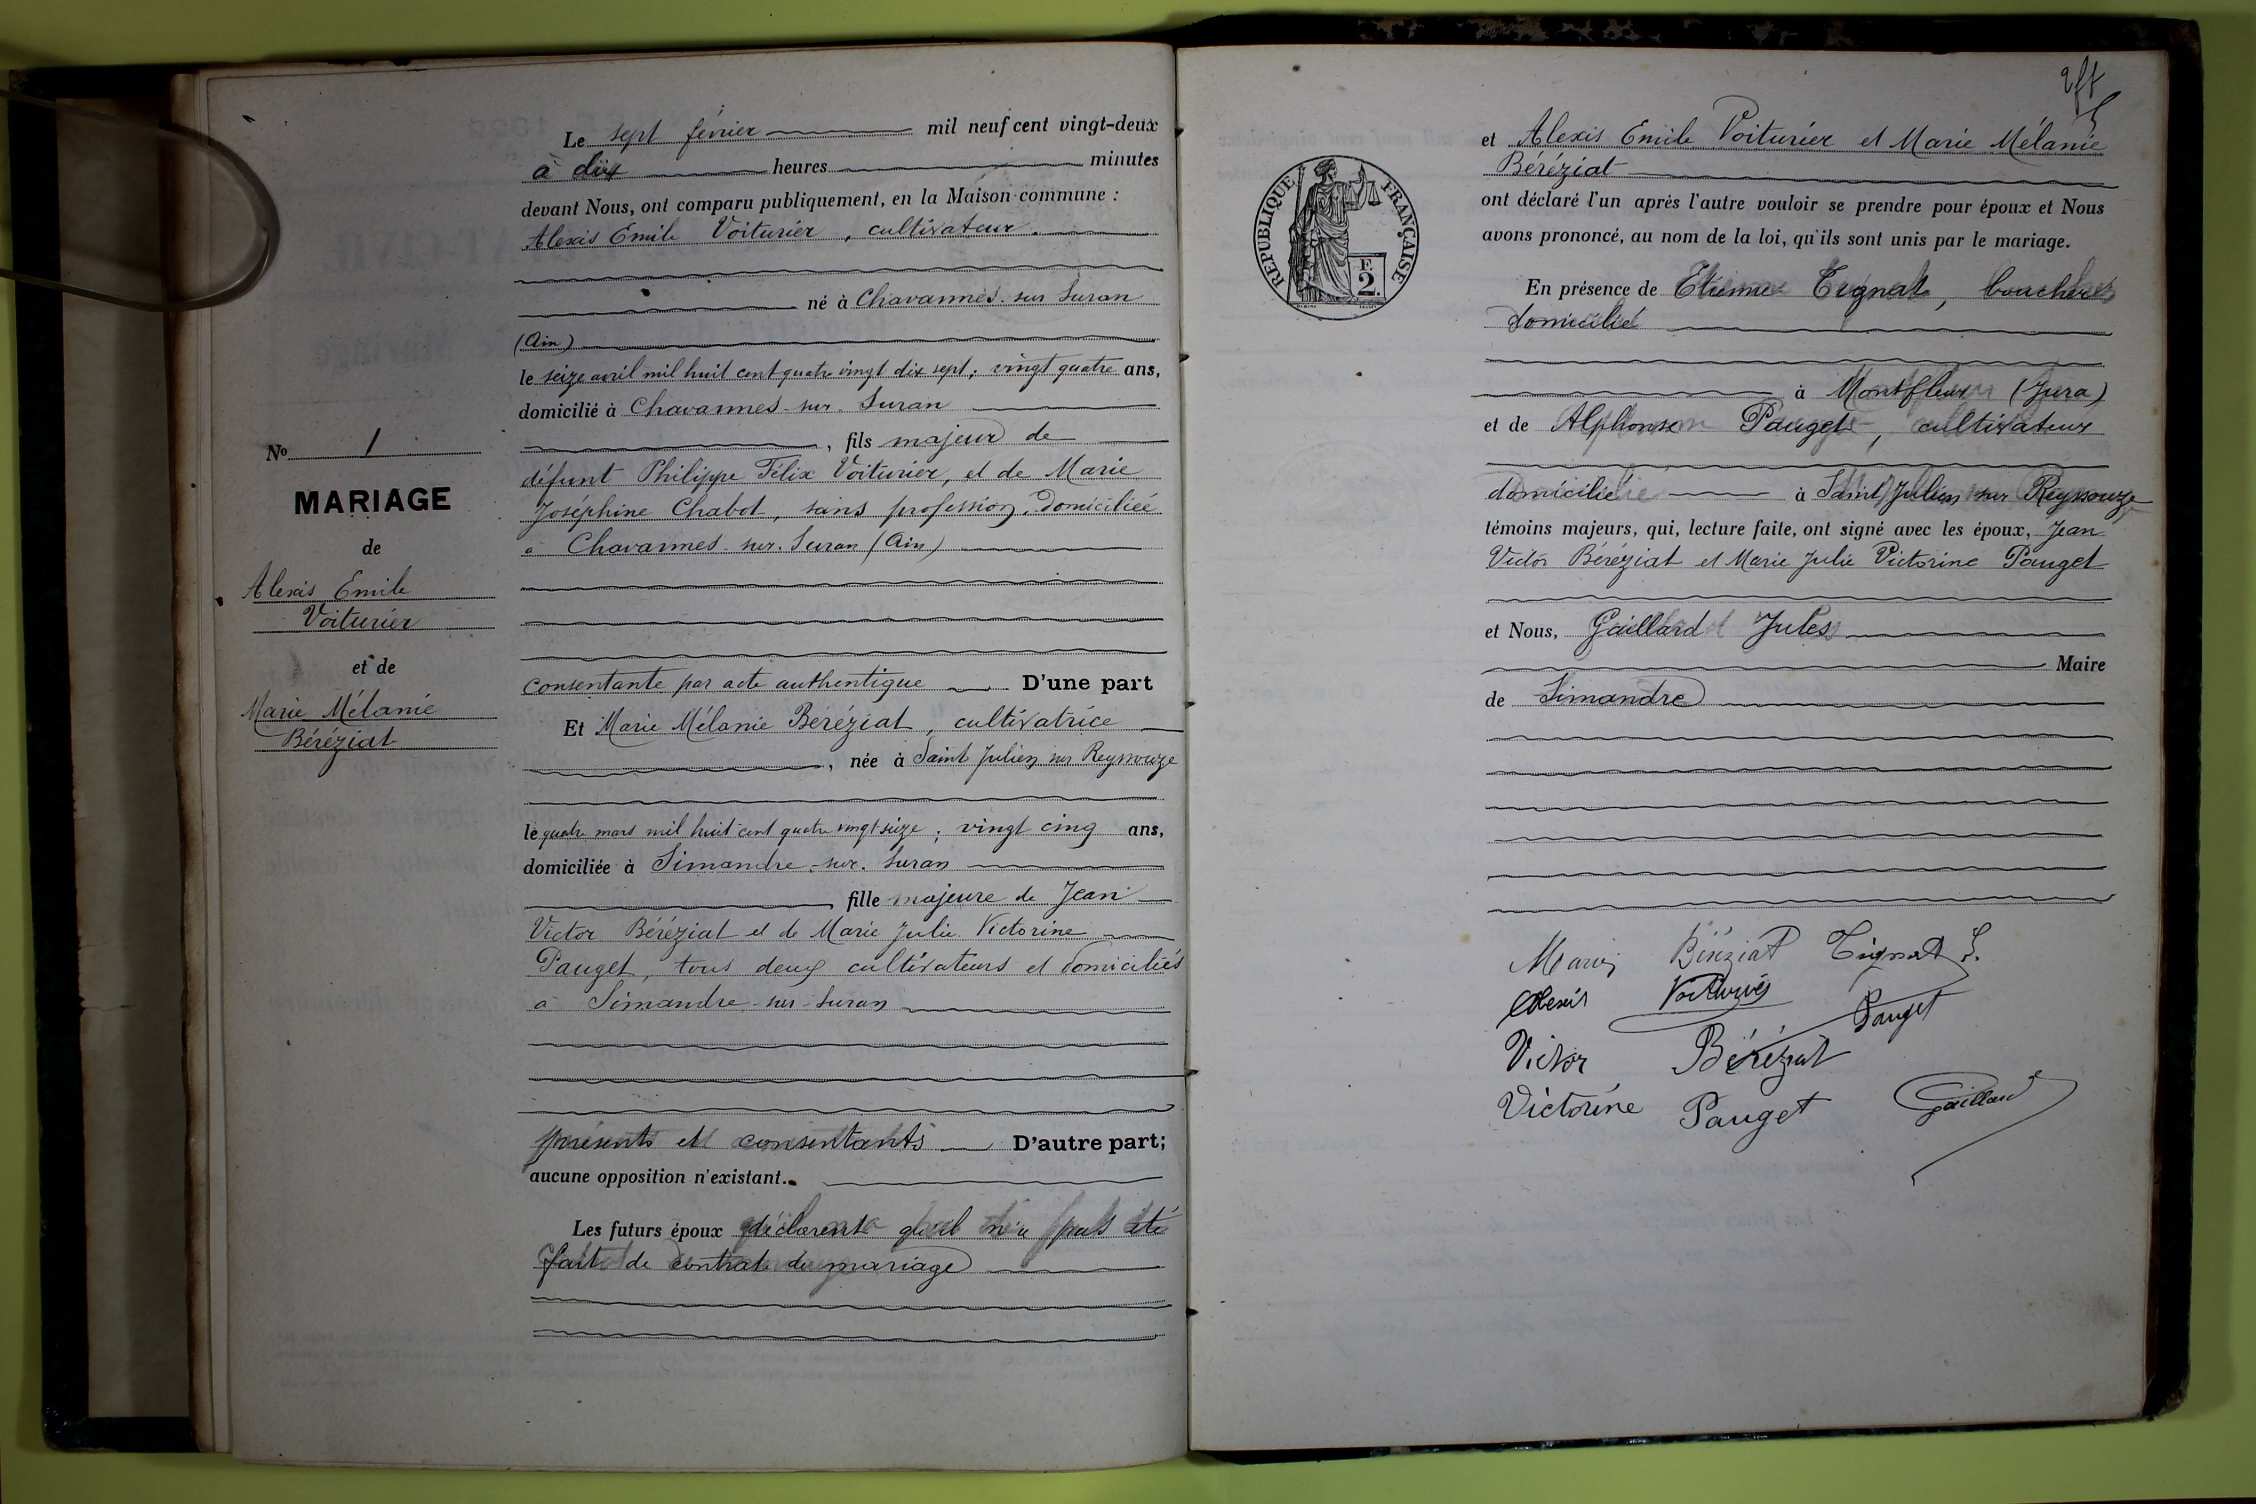 Le sept février mil neuf cent vingt-deux
à dix heures minutes
devant Nous, ont comparu publiquement, en la Maison commune :
Alexis Emile Voiturier, cultivateur.
né à Chavannes-sur-Suran
(Ain)
le seize avril mil huit cent quatre vingt dix sept ; vingt quatre ans,
domicilié à Chavannes-sur-Suran
, fils majeur de
défunt Philippe Félix Voiturier, et de Marie
Joséphine Chabot, sans profession, domiciliée
à Chavannes-sur-Suran (Ain)
consentante par acte authentique D'une part
Et Marie Mélanie Béréziat, cultivatrice
, née à Saint Julien sur Reyssouze
le quatre mars mil huit cent quatre vingt seize ; vingt cinq ans,
domiciliée à Simandre-sur-Suran
fille majeure de Jean
Victor Béréziat et de Marie Julie Victorine
Pauget, tous deux cultivateurs et domiciliés
à Simandre-sur-Suran
présents et consentants D'autre part;
aucune opposition n'existant.
Les futurs époux déclarent qu'il n'a pas été
fait de contrat de mariage
No 1
MARIAGE
de
Alexis Emile
Voiturier
et de
Marie Mélanie
Béréziat
REPUBLIQUE FRANÇAISE
F.
2.
et Alexis Emile Voiturier et Marie Mélanie
Béréziat
ont déclaré l'un après l'autre vouloir se prendre pour époux et Nous
avons prononcé, au nom de la loi, qu'ils sont unis par le mariage.
En présence de Etienne Tignat, boucher
domicilié
à Montfleur (Jura)
et de Alphonse Pauget, cultivateur
domicilié à Saint Julien sur Reyssouze
témoins majeurs, qui, lecture faite, ont signé avec les époux, Jean
Victor Béréziat et Marie Julie Victorine Pauget
et Nous, Gaillard Jules
Maire
de Simandre
Marie Béréziat Tignat
Alexis Voiturier
Pauget
Victor Béréziat
Victorine Pauget Gaillard